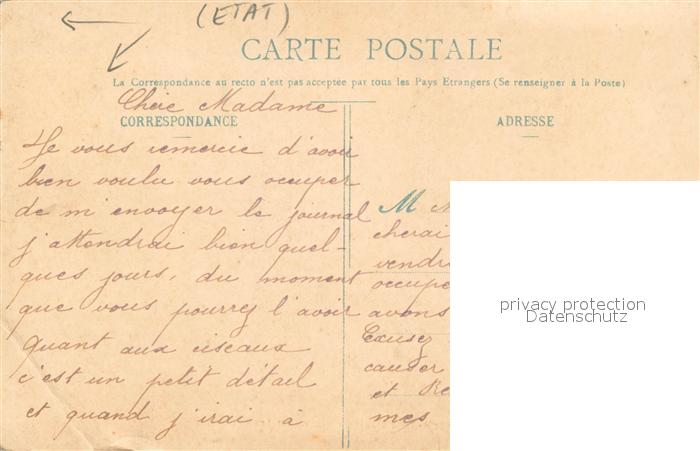 (ETAT)
CARTE POSTALE
La Correspondance au recto n'est pas acceptée par tous les Pays Etrangers (Se renseigner à la Poste)
Chere Madame
CORRESPONDANCE
Je vous remercie d'avoir
bien voulu vous occuper
de m'envoyer le journal
j'attendrai bien quel-
ques jours, du moment
que vous pourrez l'avoir
quant aux ciseaux
c'est un petit détail
et quand j'irai à
ADRESSE
M
cherai
vendre
occupe
avons
Excusez
causer
et Re
mes
privacy protection
Datenschutz